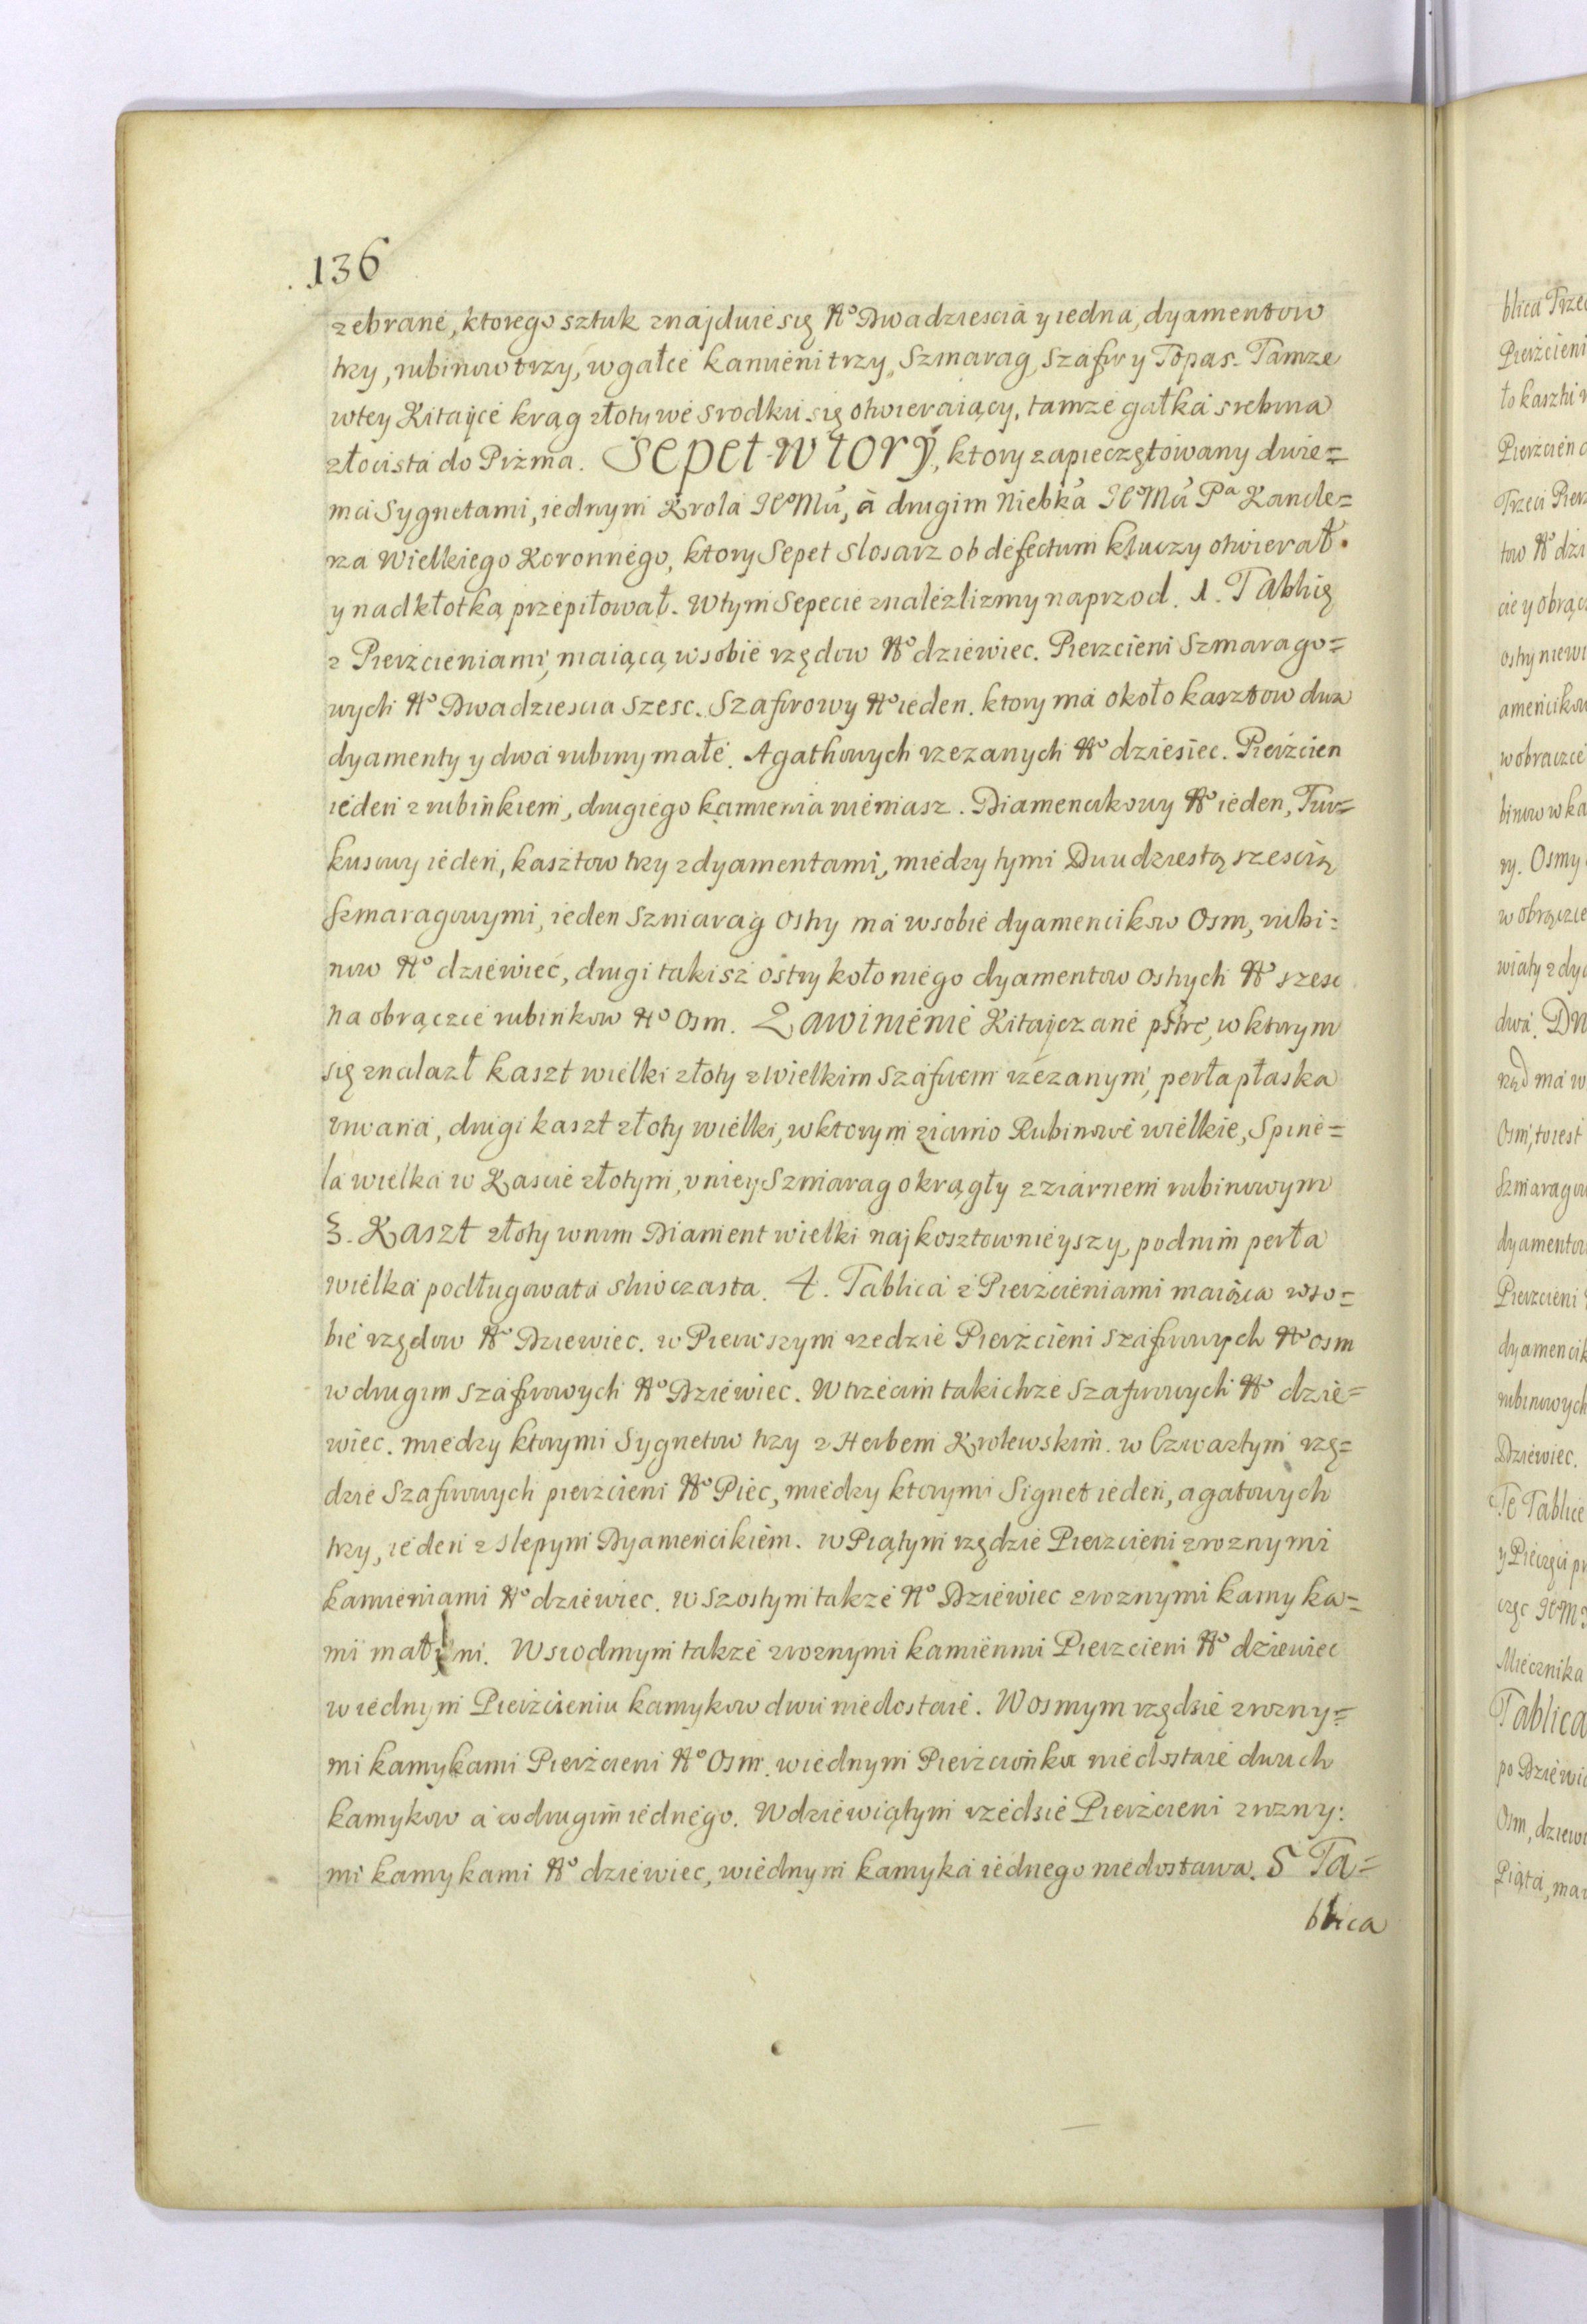 136
zebrane, ktorego sztuk znajduie się No Dwadziescia y iedna, dyamentow
trzy, rubinow trzy, w gałce kamieni trzy, Szmarag, szafir y Topas. Tamze
wtey Kitayce krąg złoty we srodku się otwieraiący, tamze gałka srebrna
złocista do Pizma. Sepet wtory, ktory zapieczętowany dwie=
ma Sygnetami, iednym Krola JeoMci, a drugim Niebka JeoMci Pa Kancle=
rza Wielkiego Koronnego, ktory Sepet slosarz ob defectum kluczy otwierał
y nad kłotką przepiłował. Wtym Sepecie znalezlizmy naprzod. 1. Tablicę
z Pierzcieniami, maiącą wsobie rzędow No dziewiec. Pierzcieni Szmarago=
wych No Dwadziescia szesc. Szafirowy No ieden. ktory ma około kasztow dwa
dyamenty y dwa rubiny małe. Agathowych rzezanych No dziesiec. Pierzcien
ieden z rubinkiem, drugiego kamienia niemasz. Diamencikowy No ieden, Tur=
kusowy ieden, kasztow trzy z dyamentami, miedzy tymi Dwudziestą szescią
szmaragowymi, ieden Szmarag ostry ma wsobie dyamencikow Osm, rubi=
now No dziewieć, drugi takisz ostry koło niego dyamentow ostrych No szesc
na obrączce rubinkow No Osm. Zawinienie Kitayczane pstre, w ktorym
się znalazł kaszt wielki złoty z wielkim szafirem rzezanym, perła płaska
urwana, drugi kaszt złoty wielki, wktorym ziarno Rubinowe wielkie, Spine=
la wielka w Kascie złotym, u niey Szmarag okrągły z ziarnem rubinowym
3. Kaszt złoty wnim Diament wielki najkosztownieyszy, podnim perła
wielka podługowata słuoczasta. 4. Tablica z Pierzcieniami maiąca wso=
bie rzędow No Dziewiec. w Pierwszym rzedzie Pierzcieni szafirowych No osm
w drugim szafirowych No Dziewiec. W trzecim takichze szafirowych No dzie=
wiec. miedzy ktorymi Sygnetow trzy z Herbem Krolewskim. w Czwartym rzę=
dzie Szafirowych pierzcieni No Piec, miedzy ktorymi Signet ieden, agatowych
trzy, ieden z slepym Dyamencikiem. w Piątym rzędzie Pierzcieni z roznymi
kamieniami No dziewiec. w Szostym takze No Dziewiec z roznymi kamyka=
mi małymi. W siodmym takze z roznymi kamienmi Pierzcieni No dziewiec
w iednym Pierzcieniu kamykow dwu niedostaie. W osmym rzędzie z rozny=
mi kamykami Pierzcieni No Osm. wiednym Pierzcionku niedostaie dwuch
kamykow a w drugim iednego. W dziewiątym rzedzie Pierzcieni z rozny=
mi kamykami No dziewiec, wiednym kamyka iednego niedostawa. 5 Ta=
blica